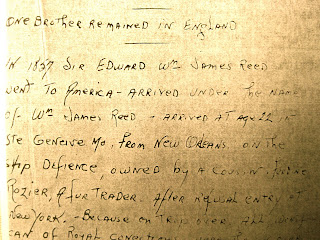 ONE BROTHER REMAINED IN ENGLAND
IN 1837 SIR EDWARD WM JAMES REED
WENT TO AMERICA - ARRIVED UNDER THE NAME
OF WM JAMES REED - ARRIVED AT AGE 22 IN
STE GENEIVE MO. FROM NEW ORLEANS. ON THE
SHIP DEFIENCE, OWNED BY A COUSIN
ROZIER, A FUR TRADER. AFTER REFUSAL ENTRY AT
NEW YORK. - BECAUSE
OF ROYAL